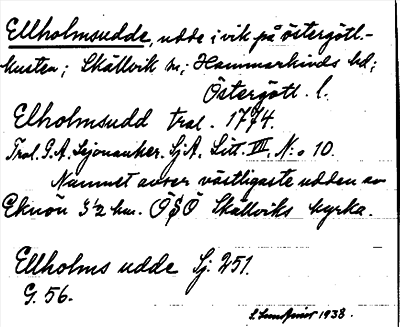 Ellholmsudde, udde i vik på östergötl.-
kusten; Skällvik sn; Hammarkinds hd;
Östergötl. l.
Elholmsudd tral. 1774.
Tral. G.A. Lejonanker. Sj.A. Litt. VII, N:o 10.
Namnet avser västligaste udden av
Eknön 3½ km. ÖSÖ Skällviks kyrka.
Ellholms udde Sj. 251.
G. 56.
1938.